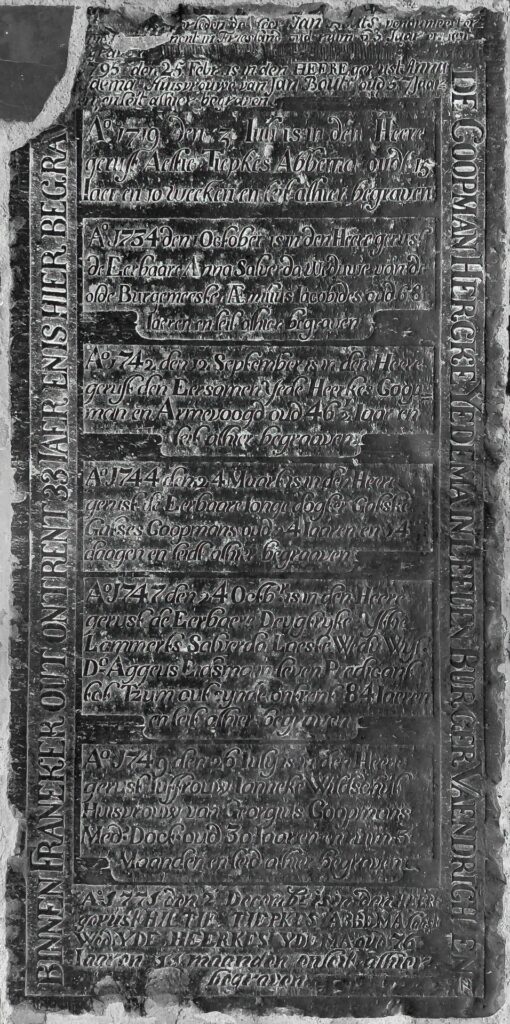 Jan
in Friesland oud ruim 55 Jaer en
95 den 25 Febr. is in den HEERE gerust Anna
huisvrouwe van Jan oud
en leit alhier begraven
Ao. 1719 den 3 Iuli is in den Heere
gerust Aeltie Tiepkes Abbema oudt 15
Iaer en 10 weeken en leit alhier begraven
Ao. 1734 den October is in den Heere gerust
de Eerbaare Anna Salverda Weduwe van de
olde Burgemeester Æmilius Iacobides oud 68
Iaeren en leit alhier begraven
Ao. 1742 den 12 September is in den Heere
gerust den Eersamen Yede Heerkes Coop-
man en Armevoogd oud 46½ Iaar en
leit alhier begraaven
Ao. 1744 den 24 Maart is in den Heere
gerust de Eerbaare Ionge dogter Gatske
Garses Coopmans oud 24 Iaaren en 24
daagen en leidt alhier begraaven
Ao. 1747 den 24 Octobr. is in den Heere
gerust de Eerbaere Deugtryke Ytie
Lammerts Salverda Laeste Wedu Wyl.
Do. Aggeus Erasma in leven Predicant
tot Tzum out Eynde ontrent 84 Iaeren
en leit alhier begraven
Ao. 1749 den 26 Iuly is in den Heere
gerust Iuffrouw Ianneke Wildschut
Huisvrouw van Georgius Coopmans
Med: Doct: oud 30 Iaaren en ruim 3
Maanden en leid alhier begraven
Ao. 1775 den 2 Decembr. is in den HEERE
gerust HILTIE TIEPKES ABBEMA
Wed YDE HEERKES YDEMA oud 76
Iaar en maanden en leit alhier
begraven
DE COOPMAN HERCKE YEDEMA IN LEEUEN BURGER VAENDRICH EN
BINNEN FRANEKER OUT ONTRENT 33 IAER EN IS HIER BEGRA